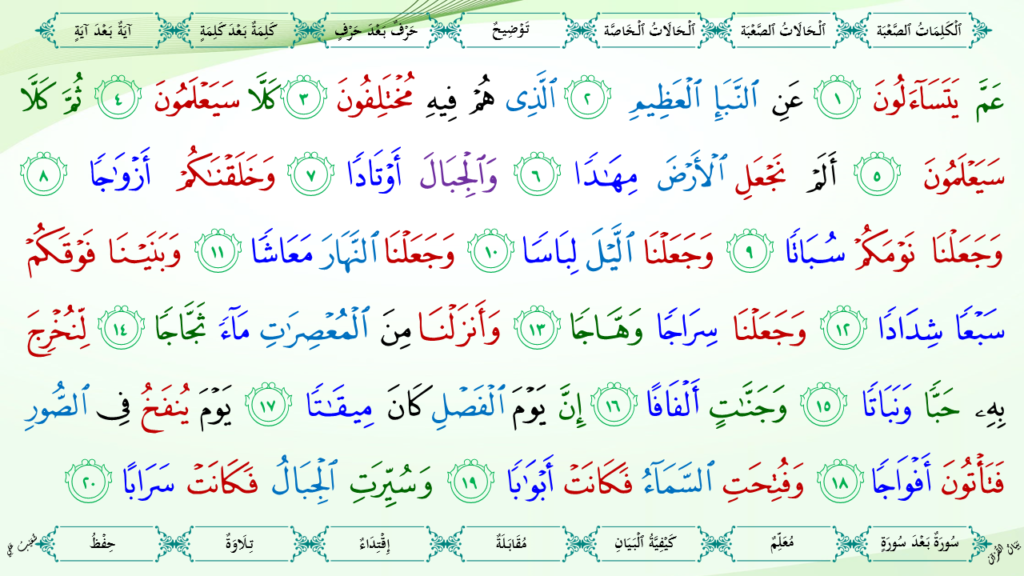 اَلْكَلِمَاتُ الصَّعْبَة اَلْحَالَاتُ الصَّعْبَة اَلْحَالَاتُ الْخَاصَّة تَوْضِيحٌ حَرْفٌ بَعْدَ حَرْفٍ كَلِمَةٌ بَعْدَ كَلِمَةٍ آيَةٌ بَعْدَ آيَةٍ
عَمَّ يَتَسَآءَلُونَ ١ عَنِ ٱلنَّبَإِ ٱلْعَظِيمِ ٢ ٱلَّذِى هُمْ فِيهِ مُخْتَلِفُونَ ٣ كَلَّا سَيَعْلَمُونَ ٤ ثُمَّ كَلَّا
سَيَعْلَمُونَ ٥ أَلَمْ نَجْعَلِ ٱلْأَرْضَ مِهَـٰدًا ٦ وَٱلْجِبَالَ أَوْتَادًا ٧ وَخَلَقْنَـٰكُمْ أَزْوَٰجًا ٨
وَجَعَلْنَا نَوْمَكُمْ سُبَاتًا ٩ وَجَعَلْنَا ٱلَّيْلَ لِبَاسًا ١٠ وَجَعَلْنَا ٱلنَّهَارَ مَعَاشًا ١١ وَبَنَيْنَا فَوْقَكُمْ
سَبْعًا شِدَادًا ١٢ وَجَعَلْنَا سِرَاجًا وَهَّاجًا ١٣ وَأَنزَلْنَا مِنَ ٱلْمُعْصِرَٰتِ مَآءً ثَجَّاجًا ١٤ لِّنُخْرِجَ
بِهِۦ حَبًّا وَنَبَاتًا ١٥ وَجَنَّـٰتٍ أَلْفَافًا ١٦ إِنَّ يَوْمَ ٱلْفَصْلِ كَانَ مِيقَـٰتًا ١٧ يَوْمَ يُنفَخُ فِى ٱلصُّورِ
فَتَأْتُونَ أَفْوَاجًا ١٨ وَفُتِحَتِ ٱلسَّمَآءُ فَكَانَتْ أَبْوَٰبًا ١٩ وَسُيِّرَتِ ٱلْجِبَالُ فَكَانَتْ سَرَابًا ٢٠
سُورَةٌ بَعْدَ سُورَةٍ مُعَلِّمٌ كَيْفِيَّةُ الْبَيَانِ مُقَابَلَةٌ إِقْتِدَاءٌ تِلَاوَةٌ حِفْظٌ